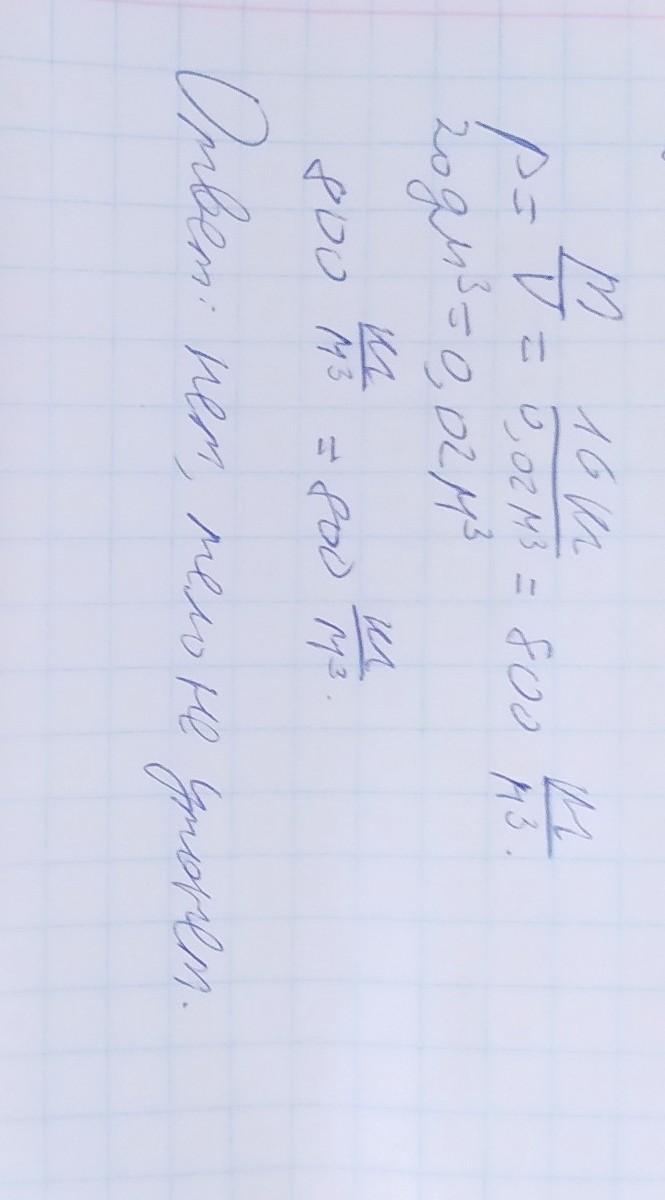 ρ = m/V = 16 кг/0,02 м³ = 800 кг/м³.
20 дм³ = 0,02 м³
800 кг/м³ = 800 кг/м³.
Ответ: нет, тело не утонет.